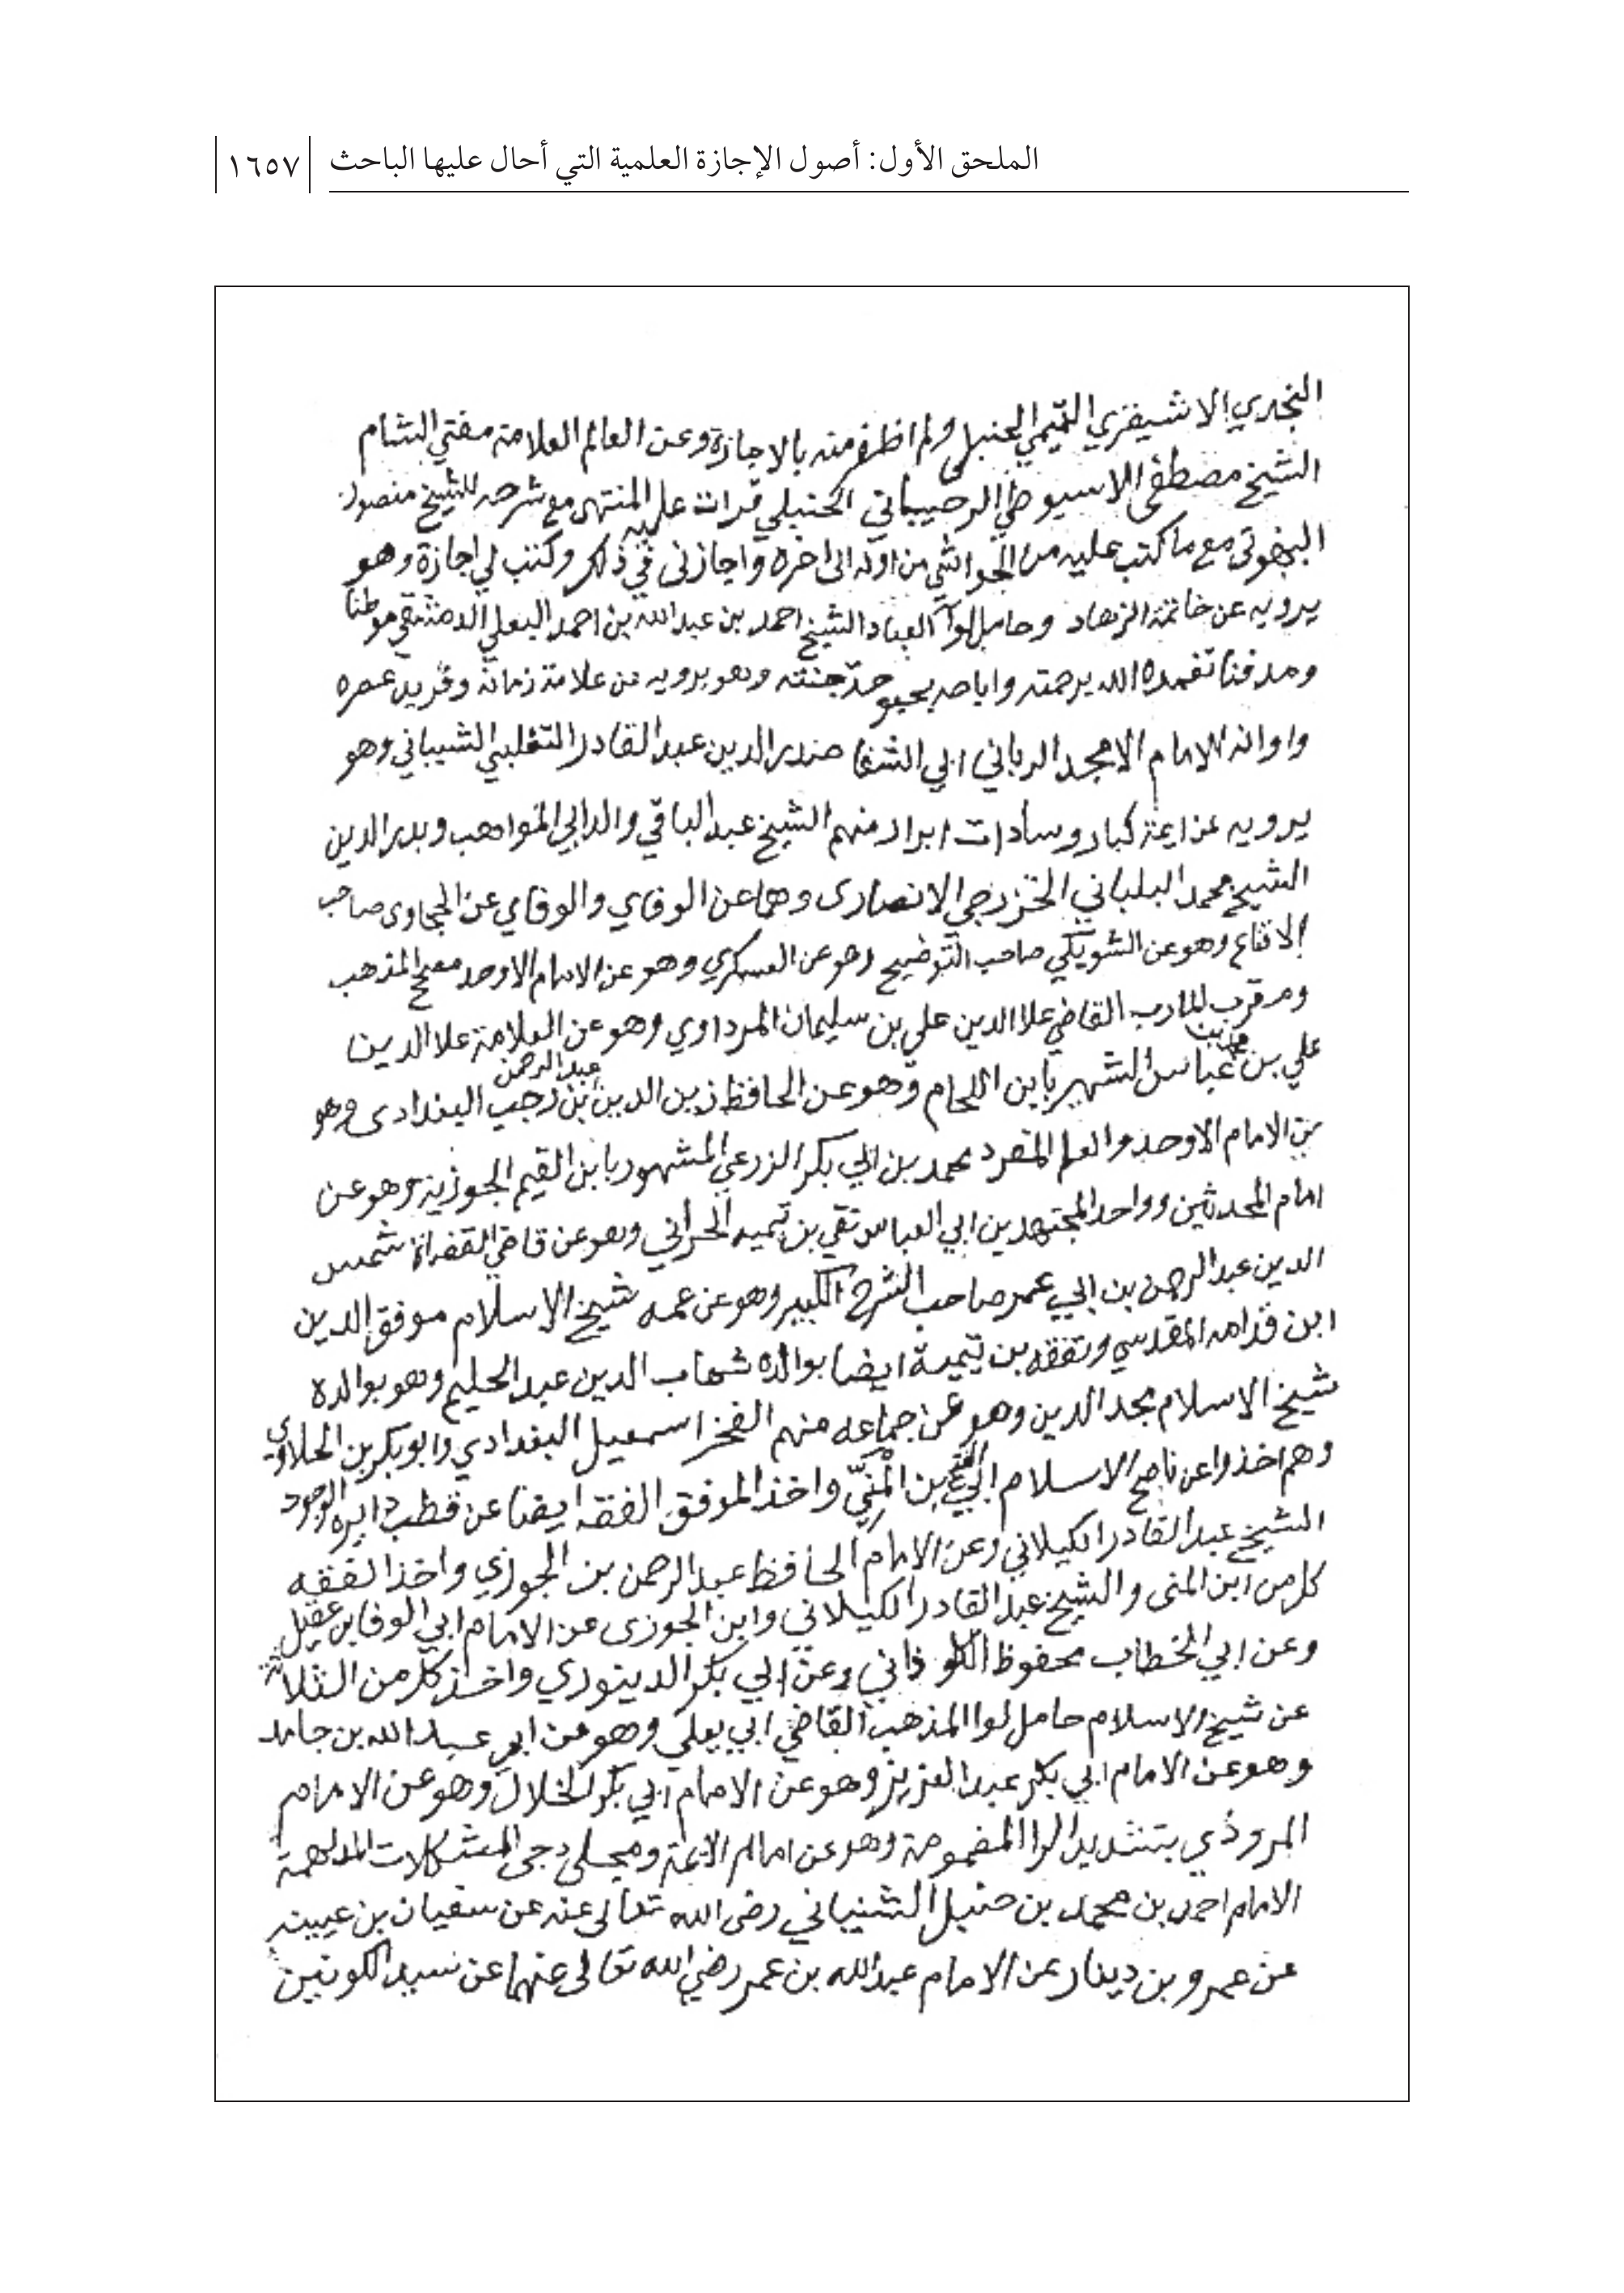 الملحق الأول: أصول الإجازة العلمية التي أحال عليها الباحث ١٦٥٧
النجدي الاشيقري التميمي الحنبلي ولم اظفر منه بالاجازة وعن العالم العلامة مفتي الشام
الشيخ مصطفى الاسيوطي الرحيباني الحنبلي قرات عليه المنتهى مع شرحه للشيخ منصور
البهوتي مع ما كتب عليه من الحواشي من اوله الى اخره واجازني في ذلك وكتب لي اجازة وهو
يرويه عن خاتمة الزهاد وحامل لوآ العباد الشيخ احمد بن عبد الله بن احمد البعلي الدمشقي موطنا
ومدفنا تغمده الله برحمته واباحه بحبوحة جنته وهو يرويه عن علامة زمانه وفريد عصره
واوانه الامام الامجد الرباني ابي التقا صدر الدين عبد القادر التغلبي الشيباني وهو
يرويه عن ايمة كبار وسادات ابرار منهم الشيخ عبد الباقي والد ابي المواهب وبدر الدين
الشيخ محمد البلباني الخزرجي الانصارى وهما عن الوفاي والوفاي عن الحجاوى صاحب
الاقناع وهو عن الشويكي صاحب التوضيح وهو عن العسكري وهو عن الامام الاوحد مصحح المذهب
ومقرب المارب القاضي علا الدين علي بن سليمان المرداوي وهو عن العلامة علا الدين
علي بن محمد بن عباس الشهير بابن اللحام وهو عن الحافظ زين الدين عبد الرحمن بن رجب البغدادى وهو
عن الامام الاوحد والعلم المفرد محمد بن ابي بكر الزرعي المشهور بابن القيم الجوزية وهو عن
امام المحدثين وواحد المجتهدين ابي العباس تقي بن تيميه الحراني وهو عن قاضي القضاة شمس
الدين عبد الرحمن بن ابي عمر صاحب الشرح الكبير وهو عن عمه شيخ الاسلام موفق الدين
ابن قدامه المقدسي وتفقه بن تيمية ايضا بوالده شهاب الدين عبد الحليم وهو بوالده
شيخ الاسلام مجد الدين وهو عن جماعه منهم الفخر اسمعيل البغدادي وابو بكر بن الحلاوي
وهم اخذوا عن ناصح الاسلام ابي الفتح بن المني واخذ الموفق الفقه ايضا عن قطب دايره الوجود
الشيخ عبد القادر الكيلاني وعن الامام الحافظ عبد الرحمن بن الجوزي واخذ الفقه
كل من ابن المنى والشيخ عبد القادر الكيلاني وابن الجوزى عن الامام ابي الوفا بن عقيل
وعن ابي الخطاب محفوظ الكلوذاني وعن ابي بكر الدينوري واخذ كل من الثلاثة
عن شيخ الاسلام حامل لوا المذهب القاضي ابي يعلي وهو عن ابي عبد الله بن حامد
وهو عن الامام ابي بكر عبد العزيز وهو عن الامام ابي بكر الخلال وهو عن الامام
المروذي بتشديد الرا المضمومة وهو عن امام الايمة ومجلي دجى المشكلات المدلهمة
الامام احمد بن محمد بن حنبل الشيباني رضى الله تعالى عنه عن سفيان بن عيينه
عن عمرو بن دينار عن الامام عبد الله بن عمر رضي الله تعالى عنهما عن سيد الكونين